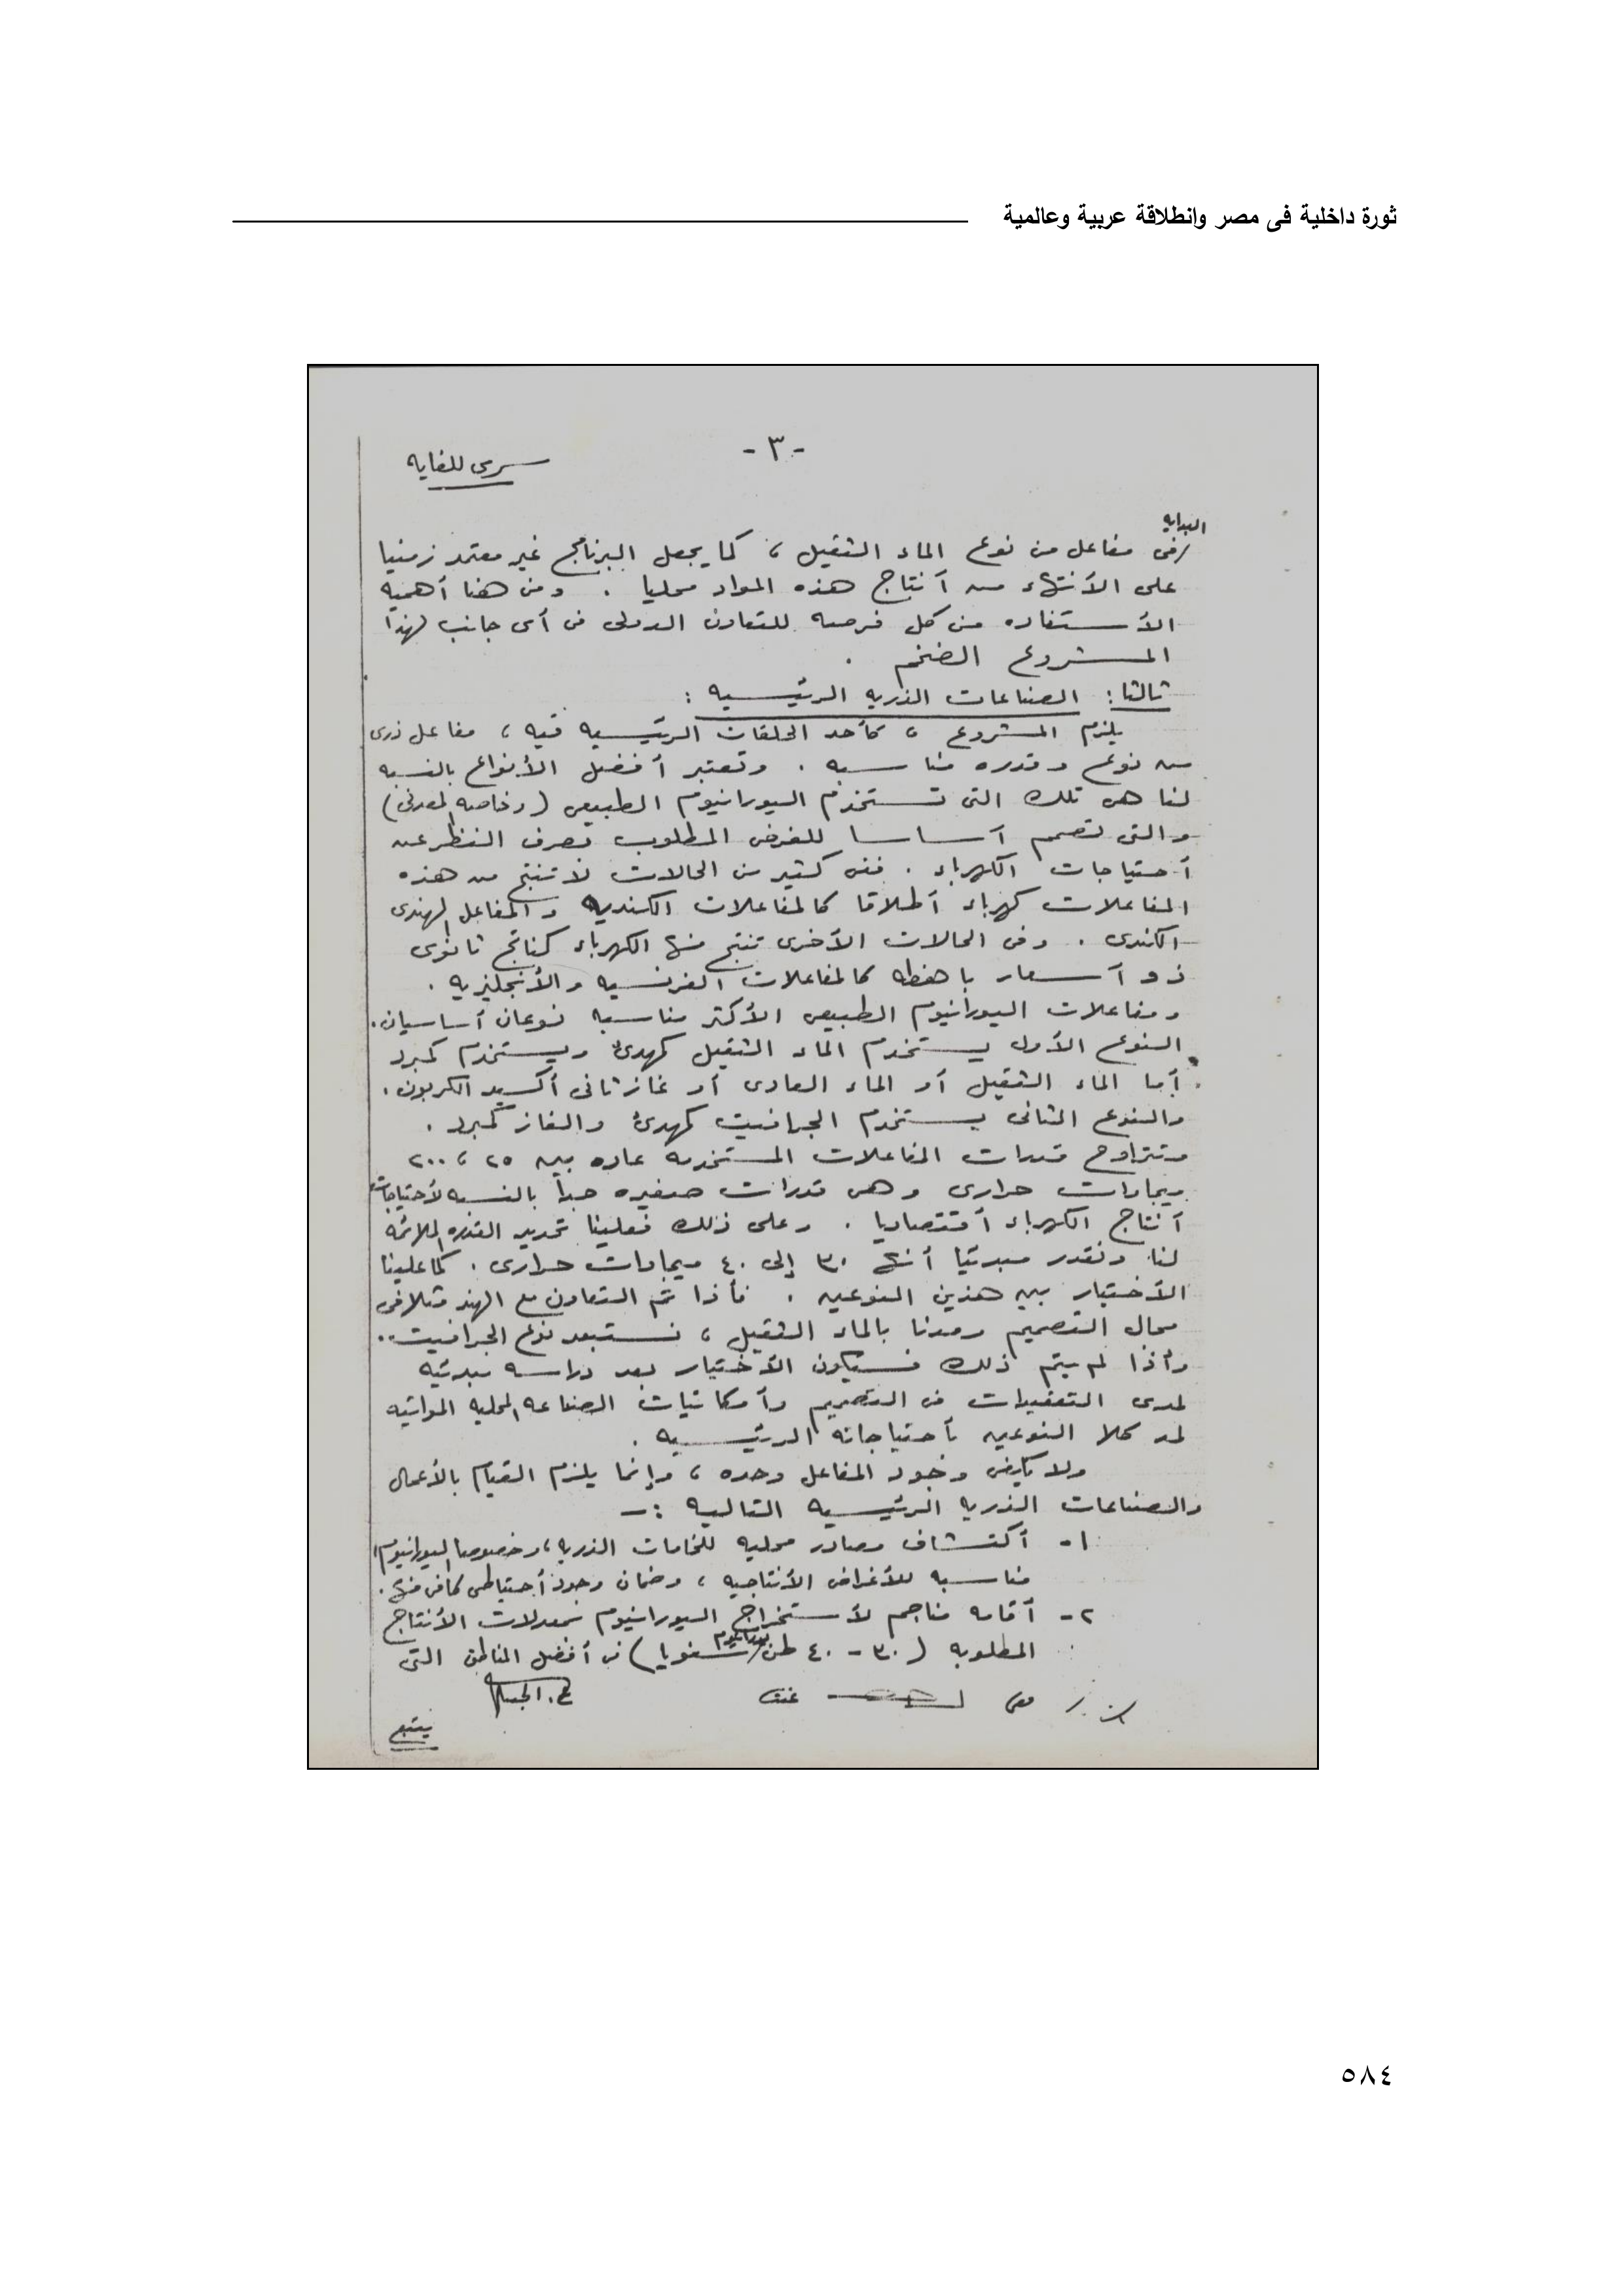 ثورة داخلية فى مصر وانطلاقة عربية وعالمية
- ٣ -
سرى للغايه
البدايه
فى مفاعل من نوع الماء الثقيل ، كما يجعل البرنامج غير معتمد زمنيا
على الأنتهاء من أنتاج هذه المواد محليا . ومن هنا أهميه
الأستفاده من كل فرصه للتعاون الدولى فى أى جانب لهذا
المشروع الضخم .
ثالثا : الصناعات الذريه الرئيسيه :
يلزم المشروع ، كأحد الحلقات الرئيسيه فيه ، مفاعل ذرى
من نوع وقدره مناسبه . وتعتبر أفضل الأنواع بالنسبه
لنا هى تلك التى تستخدم اليورانيوم الطبيعى ( وخاصه المعدنى )
والتى تصمم أساسا للغرض المطلوب بصرف النظر عن
أحتياجات الكهرباء . ففى كثير من الحالات لا تنتج من هذه
المفاعلات كهرباء أطلاقا كالمفاعلات الكنديه والمفاعل الهندى
الكندى . وفى الحالات الأخرى تنتج منها الكهرباء كناتج ثانوى
ذو أسعار باهظه كالمفاعلات الفرنسيه والأنجليزيه .
ومفاعلات اليورانيوم الطبيعى الأكثر مناسبه نوعان أساسيان .
النوع الأول يستخدم الماء الثقيل كمهدئ ويستخدم كمبرد
أما الماء الثقيل أو الماء العادى أو غاز ثانى أكسيد الكربون .
والنوع الثانى يستخدم الجرافيت كمهدئ والغاز كمبرد .
وتتراوح قدرات المفاعلات المستخدمه عاده بين ٢٥ ، ٢٠٠
ميجاوات حرارى وهى قدرات صغيره جدا بالنسبه لأحتياجات
أنتاج الكهرباء أقتصاديا . وعلى ذلك فعلينا تحديد القدره الملائمه
لنا ونقدر مبدئيا أنها ٣٠ إلى ٤٠ ميجاوات حرارى . كما علينا
الأختيار بين هذين النوعين . فأذا تم التعاون مع الهند مثلا فى
مجال التصميم ومدنا بالماء الثقيل ، نستبعد نوع الجرافيت ..
وأذا لم يتم ذلك فسيكون الأختيار بعد دراسه مبدئيه
لمدى التعقيدات فى التصميم وأمكانيات الصناعه المحليه المواتيه
لمد كلا النوعين بأحتياجاته الرئيسيه .
ولا يكفى وجود المفاعل وحده ، وإنما يلزم القيام بالأعمال
والصناعات الذريه الرئيسيه التاليه :-
١- أكتشاف مصادر محليه للخامات الذريه ، وخصوصا اليورانيوم ،
مناسبه للأغراض الأنتاجيه ، وضمان وجود أحتياطى كافى منها .
٢- أقامه مناجم لأستخراج اليورانيوم بمعدلات الأنتاج
المطلوبه ( ٣٠ - ٤٠ طن يورانيوم سنويا ) فى أفضل المناطق التى
يتبع
٥٨٤